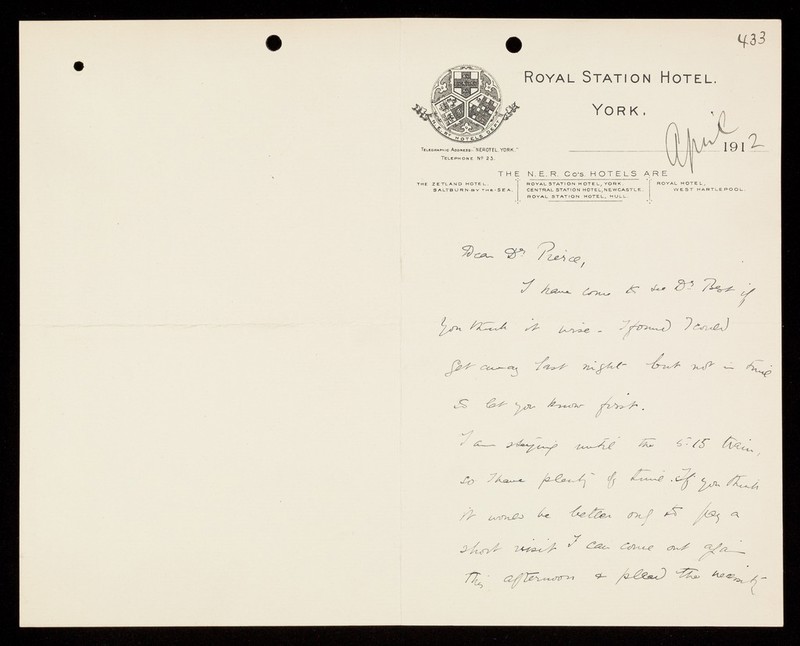 433
ROYAL STATION HOTEL.
YORK.
N.E.RY HOTELS DEPT
TELEGRAPHIC ADDRESS-"NEROTEL YORK."
TELEPHONE Nº 23.
April 1912
THE N.E.R. CO'S HOTELS ARE
THE ZETLAND HOTEL, SALTBURN-BY-THE-SEA.
ROYAL STATION HOTEL, YORK.
CENTRAL STATION HOTEL, NEWCASTLE.
ROYAL STATION HOTEL, HULL.
ROYAL HOTEL, WEST HARTLEPOOL.
Dear Dr Pierce,
I have come to see Dr Best if
you think it wise - I found I could
get away last night but not in time
to let you know first.
I am staying until the 5.15 train,
so I have plenty of time. If you think
it would be better only to pay a
short visit I can come out again
this afternoon & plead the necessity